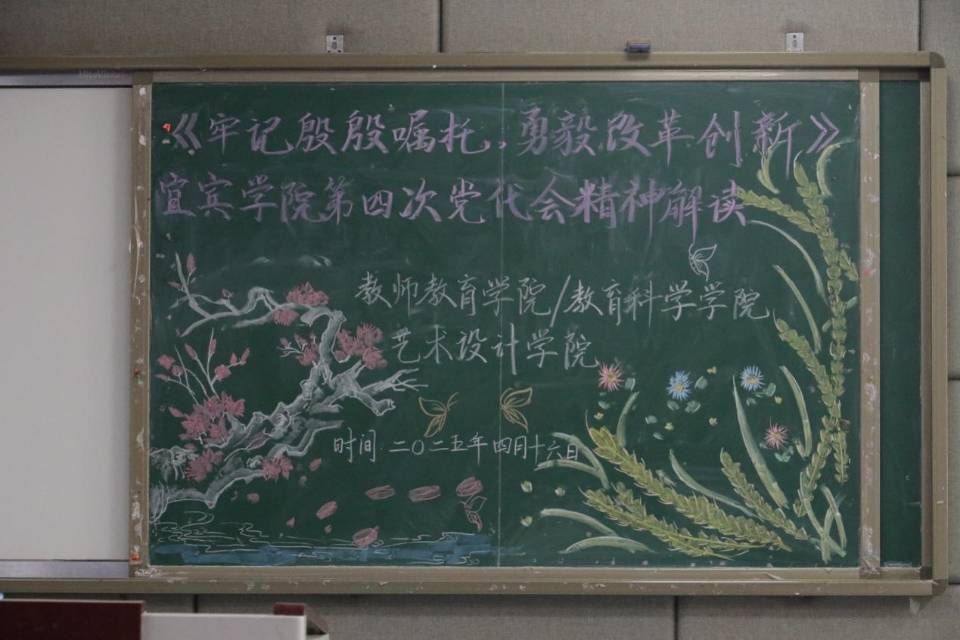 《牢记殷殷嘱托，勇毅改革创新》
宜宾学院第四次党代会精神解读
教师教育学院/教育科学学院
艺术设计学院
时间:二〇二五年四月十六日